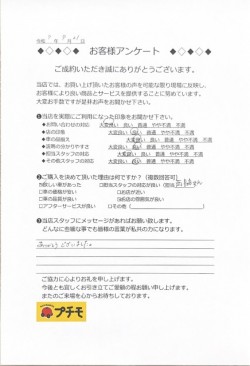 ◆◇◆◇◆ お客様アンケート ◆◇◆◇◆
ご成約いただき誠にありがとうございます。
当店では、お買い上げ頂いたお客様の声を可能な限り現場に反映し、
お客様により良い商品とサービスを提供することに努めています。
大変お手数ですが是非お声をお聞かせ下さい。
❶当店を実際にご利用になった印象をお聞かせ下さい。
◆お問い合わせの対応 大変良い 良い 普通 やや不満 不満
◆店の印象 大変良い 良い 普通 やや不満 不満
◆車の品揃え 大変良い 良い 普通 やや不満 不満
◆説明の分かりやすさ 大変良い 良い 普通 やや不満 不満
◆担当スタッフの対応 大変良い 良い 普通 やや不満 不満
◆その他スタッフの対応 大変良い 良い 普通 やや不満 不満
❷ご購入を決めて頂いた理由は何ですか?(複数回答可)
□欲しい車があった □担当スタッフの対応が良い(担当
□車の価格が安い □お店が近い
□車の品質が良い □お店の雰囲気が良い
□アフターサービスが良い □その他(
❸当店スタッフにメッセージがあればお願い致します。
どんなに些細な事でも皆様の言葉が私共の力になります。
ありがとうございました。
ご協力に心よりお礼を申し上げます。
今後とも宜しくお引き立てご愛顧の程お願い申し上げます。
またのご来場を心からお待ちしております。
プチモ